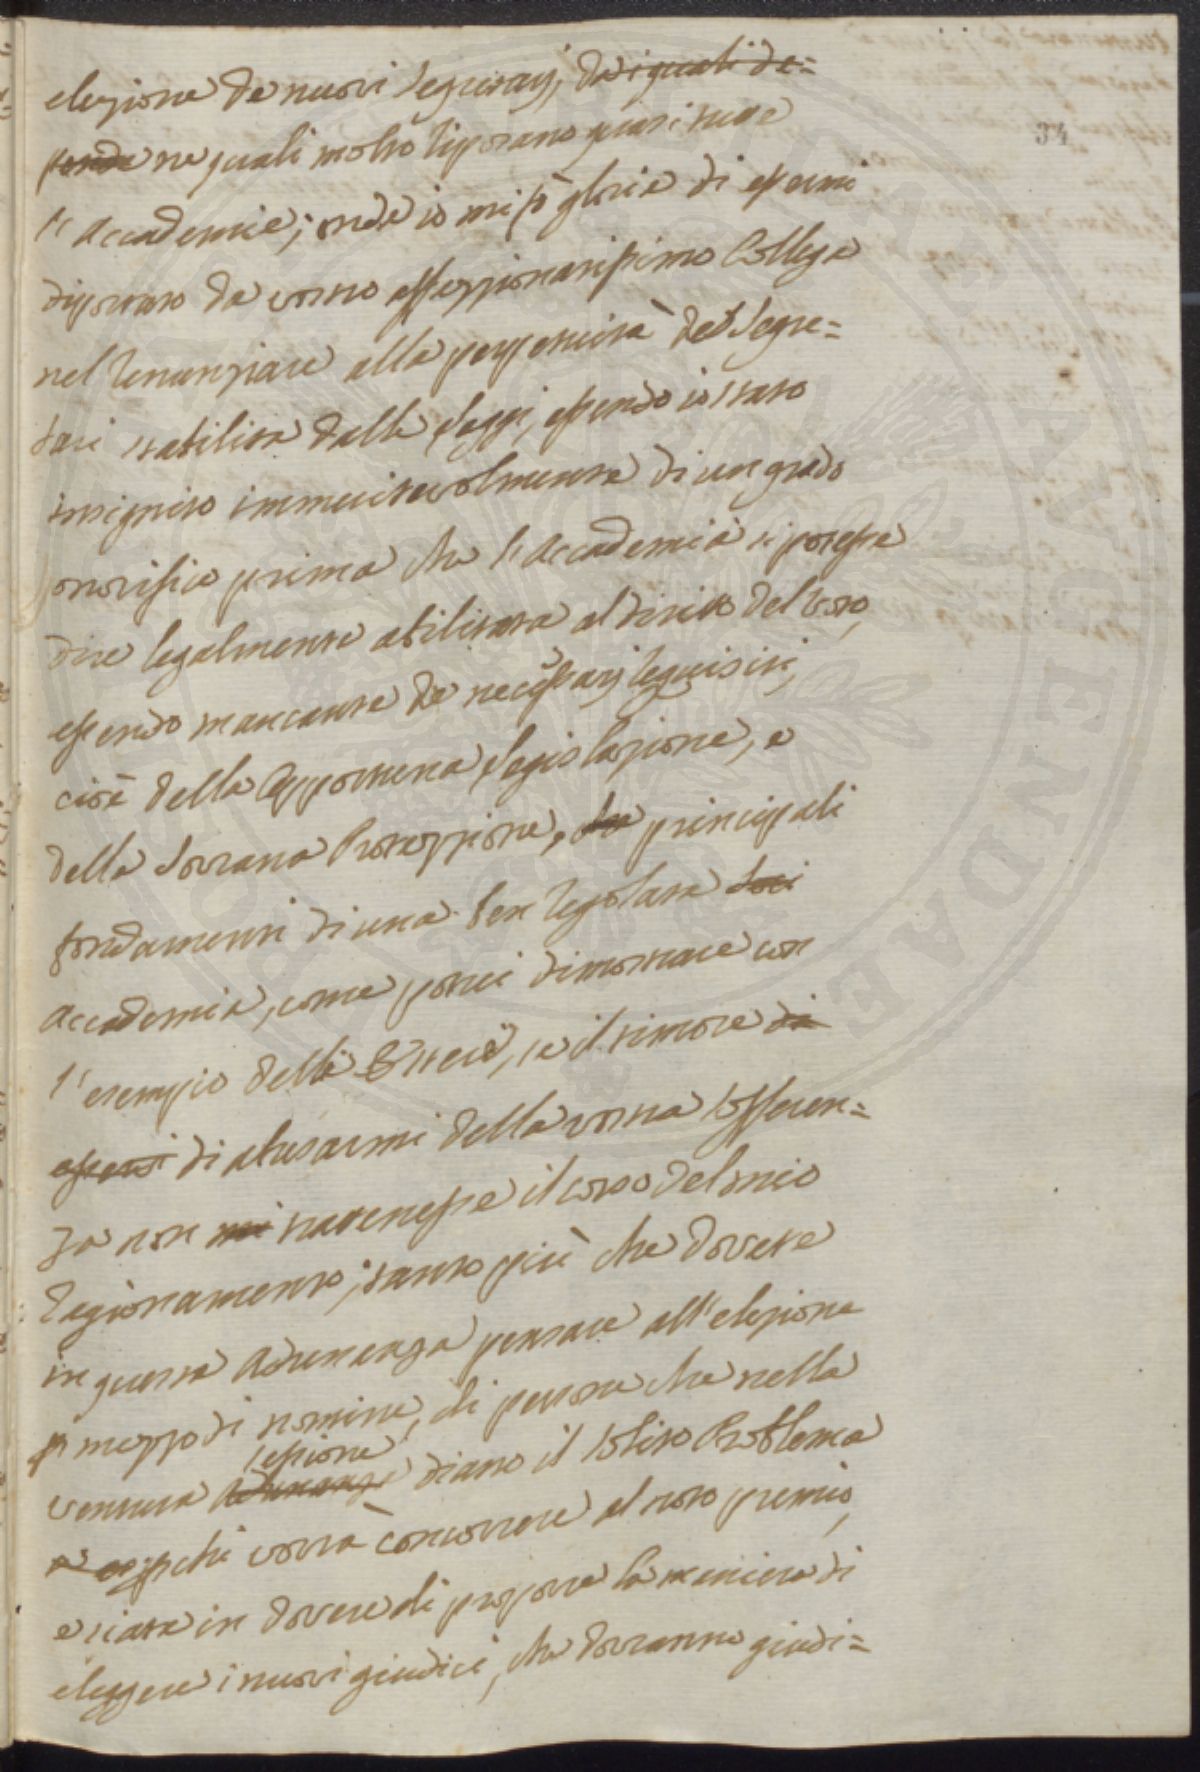 elezione de nuovi Segretarj, da i quali de=
pende ne quali molto riposano quasi tutte
l'Accademie; onde io mi fò gloria di essermi
diportato da vostro affezzionatissimo Collega
nel renunziare alla perpetuità de Segre=
tari stabilita dalle Leggi, essendo io stato
insignito immeritevolmente di un grado
onorifico prima che l'Accademia si potesse
dire legalmente abilitata al diritto del Voto,
essendo mancante de necessarj requisiti,
cioè della opportuna Legislazione, e
della Sovrana Protezzione, due principali
fondamenti di una ben regolata Soci
Accademia, come potrei dimostrare con
l'esempio delle Estere, se il timore di
essermi di abusarmi della vostra sofferen=
za non mi trattenesse il corso del mio
ragionamento; tanto più che dovete
in questa Adunanza pensare all'elezione
p mezzo di nomine, di persone che nella
sessione
ventura Adunanza diano il solito Problema
p chi vorrà concorrere al noto premio,
e siate in dovere di proporre la maniera di
eleggere i nuovi giudici, che dovranno giudi=
34